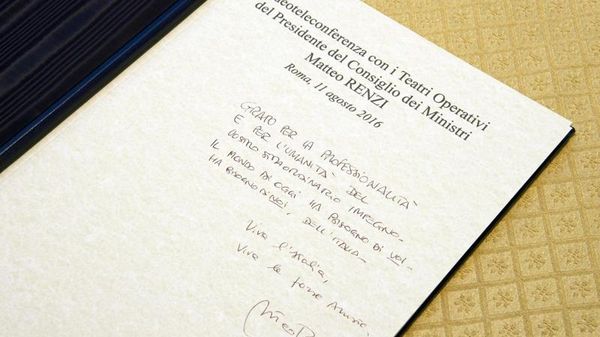 eoteleconferenza con i Teatri Operativi
del Presidente del Consiglio dei Ministri
Matteo RENZI
Roma, 11 agosto 2016
GRATO PER LA PROFESSIONALITÀ
E PER L'UMANITÀ DEL
VOSTRO STRAORDINARIO IMPEGNO.
IL MONDO DI OGGI HA BISOGNO DI VOI.
HA BISOGNO DI NOI, DELL'ITALIA.
Viva l'Italia,
Viva le forze Armate.